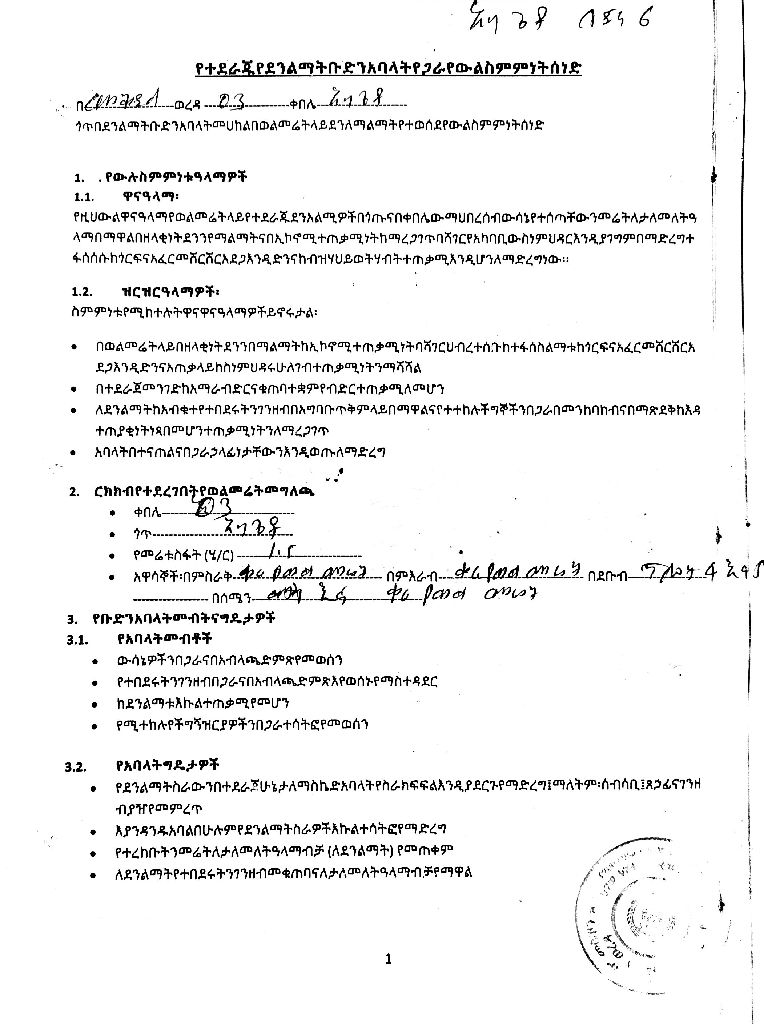 የተደራጁየደንልማትቡድንአባላትየጋራየውልስምምነትሰነድ
በ ወረዳ 03 ቀበሌ
ጎጥበደንልማትቡድንአባላትመሀከልበወልመሬትላይደንለማልማትየተወሰደየውልስምምነትሰነድ
1. .የውሉስምምነቱዓላማዎች
1.1. ዋናዓላማ፡
የዚህውልዋናዓላማየወልመሬትላይየተደራጁደንአልሚዎችበጎጡናበቀበሌውማህበረሰብውሳኔየተሰጣቸውንመሬትለታለመለትዓ
ላማበማዋልበዘላቂነትደንንየማልማትናበኢኮኖሚተጠቃሚነትከማረጋገጥባሻገርየአካባቢውስነምህዳርእንዲያገግምበማድረግተ
ፋሰሱከጎርፍናአፈርመሸርሸርአደጋእንዲድንናከብዝሃህይወትሃብትተጠቃሚእንዲሆንለማድረግነው።
1.2. ዝርዝርዓላማዎች፡
ስምምነቱየሚከተሉትዋናዋናዓላማዎችይኖሩታል፡
• በወልመሬትላይበዘላቂነትደንንበማልማትከኢኮኖሚተጠቃሚነትባሻገርሀብረተሰቡከተፋሰስልማቱከጎርፍናአፈርመሸርሸርአ
ደጋእንዲድንናአጠቃላይከስነምህዳሩሁለገብተጠቃሚነትንማሻሻል
• በተደራጀመንገድከአማራብድርናቁጠባተቋምየብድርተጠቃሚለመሆን
• ለደንልማትከአብቁተየተበደሩትንገንዘብበአግባቡጥቅምላይበማዋልናየተተከሉችግኞችንበጋራበመንከባከብናበማጽደቅከእዳ
ተጠያቂነትነጻበመሆንተጠቃሚነትንለማረጋገጥ
• አባላትበተናጠልናበጋራኃላፊነታቸውንእንዲወጡለማድረግ
2. ርክክብየተደረገበትየወልመሬትመግለጫ
• ቀበሌ 03
• ጎጥ
• የመሬቱስፋት (ሄ/ር)
• አዋሳኞች፡በምስራቅ ቀሪ የወል መሬት በምእራብ ቀሪ የወል መሬት በደቡብ
በሰሜን ቀሪ የወል መሬት
3. የቡድንአባላትመብትናግዴታዎች
3.1. የአባላትመብቶች
• ውሳኔዎችንበጋራናበአብላጫድምጽየመወሰን
• የተበደሩትንገንዘብበጋራናበአብላጫድምጽእየወሰኑየማስተዳደር
• ከደንልማቱእኩልተጠቃሚየመሆን
• የሚተከሉየችግኝዝርያዎችንበጋራተሳትፎየመወሰን
3.2. የአባላትግዴታዎች
• የደንልማትስራውንበተደራጀሁኔታለማስኬድአባላትየስራክፍፍልእንዲያደርጉየማድረግ፤ማለትም፡ሰብሳቢ፤ጸኃፊናገንዘ
ብያዥየመምረጥ
• እያንዳንዱአባልበሁሉምየደንልማትስራዎችእኩልተሳትፎየማድረግ
• የተረከቡትንመሬትለታለመለትዓላማብቻ (ለደንልማት) የመጠቀም
• ለደንልማትየተበደሩትንገንዘብመቁጠባናለታለመለትዓላማብቻየማዋል
1